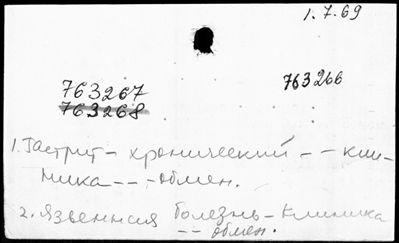 1.7.69
763267
763266
763268
1. Гастрит - хронический - - кли-
ника - - - обмен.
2. Язвенная болезнь - клиника
- - обмен.